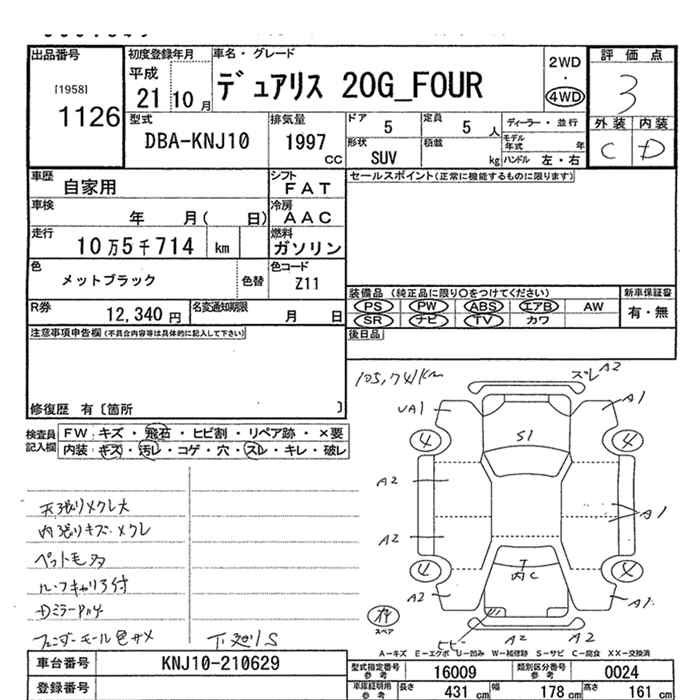 出品番号
[1958]
1126
初度登録年月
平成
21 10 月
車名・グレード
デュアリス 20G_FOUR
2WD
・
4WD
評価点
3
外装 内装
C D
型式
DBA-KNJ10
排気量
1997
cc
ドア
5
定員
5 人
形状
SUV
積載
kg
ディーラー・並行
モデル年式 年
ハンドル 左・右
車歴
自家用
シフト
FAT
車検
年 月( 日)
冷房
AAC
走行
10万5千714 km
燃料
ガソリン
色
メットブラック
色替
色コード
Z11
R券
12,340 円
名変通知期限
月 日
セールスポイント(正常に機能するものに限ります)
装備品 (純正品に限り○をつけてください)
PS PW ABS エアB AW
SR ナビ TV カワ
新車保証書
有・無
後日品
注意事項申告欄(不具合内容等は具体的に記入して下さい)
修復歴 有〔箇所 〕
検査員記入欄
FW: キズ・飛石・ヒビ割・リペア跡・×要
内装: キズ・汚レ・コゲ・穴・スレ・キレ・破レ
天張りメクレ大
内張りキズ・メクレ
ペット毛多
ルーフキャリア付
フェンダーモール色サメ
下廻りS
ズレ A2
UA1
A1
S1
4
4
A2
A1
A2
内C
4
A2
A1
ヒビ A2
A2
スペア
A-キズ E-エクボ U-凹み W-補修跡 S-サビ C-腐食 XX-交換済
車台番号
KNJ10-210629
登録番号
型式指定番号
16009
類別区分番号
0024
車庫証明用参考
長さ 431 cm
幅 178 cm
高さ 161 cm